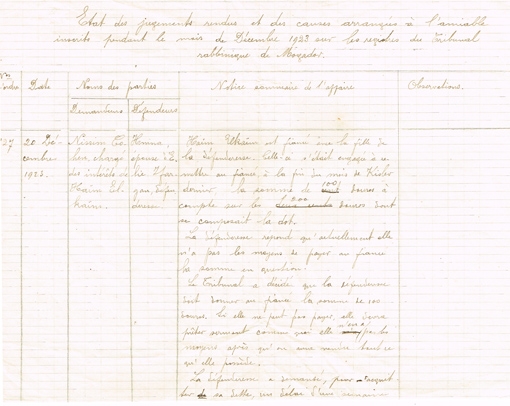 Etat des jugements rendus et des causes arrangées à l'amiable
inscrits pendant le mois de Décembre 1923 sur les registres du Tribunal
rabbinique de Mogador.
Nos d'ordre
Date
Noms des parties
Notice sommaire de l'affaire
Observations.
Demandeurs
Défendeurs
27
20 Décembre
1923.
Nissim Cohen, chargé
des intérêts de
Haïm
Hanna,
épouse
défenderesse
Haïm est fiancé avec la fille de
la défenderesse. Celle-ci s'était engagée à remettre
au fiancé, à la fin du mois de Kislev
dernier, la somme de 100 douros à
compte sur les 200 douros dont
se composait la dot.
La défenderesse répond qu'actuellement elle
n'a pas les moyens de payer au fiancé
la somme en question.
Le Tribunal a décidé que la défenderesse
doit donner au fiancé la somme de 100
douros. Si elle ne peut pas payer, elle devra
prêter serment comme quoi elle n'a pas les
moyens après qu'on aura tout ce
qu'elle possède.
La défenderesse a demandé, pour s'acquitter
de sa dette, un délai d'une semaine